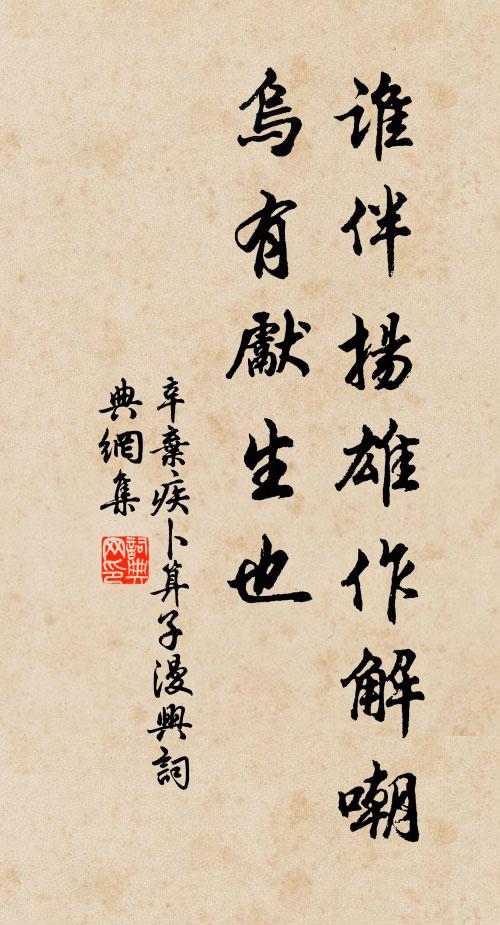 誰伴揚雄作解嘲
烏有獻生也
辛棄疾卜算子漫興詞
典網集
詞典
网印